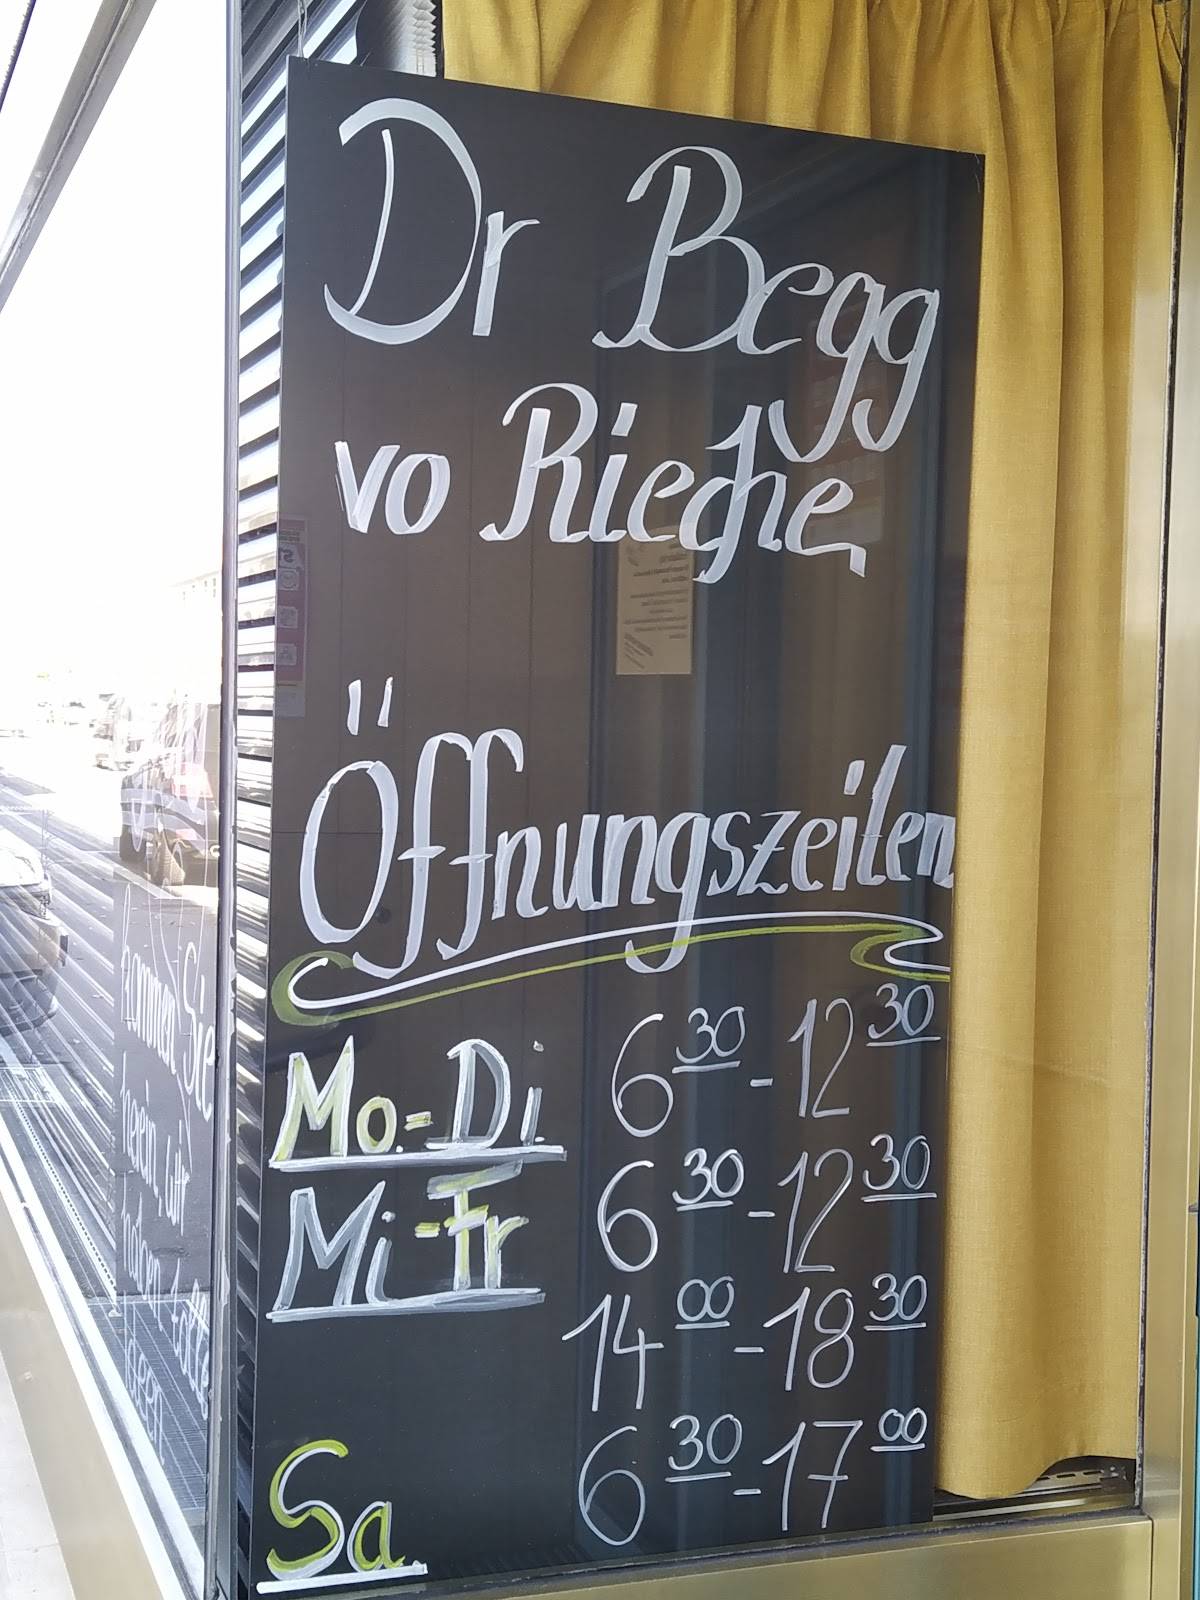 Dr Begg
vo Riehe
Öffnungszeiten
Mo.-Di. 6 30 - 12 30
Mi-Fr 6 30 - 12 30
14 00 - 18 30
Sa. 6 30 - 17 00
Sie